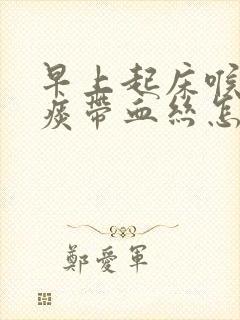 早上起床喉
痰帶血絲怎
鄭愛軍